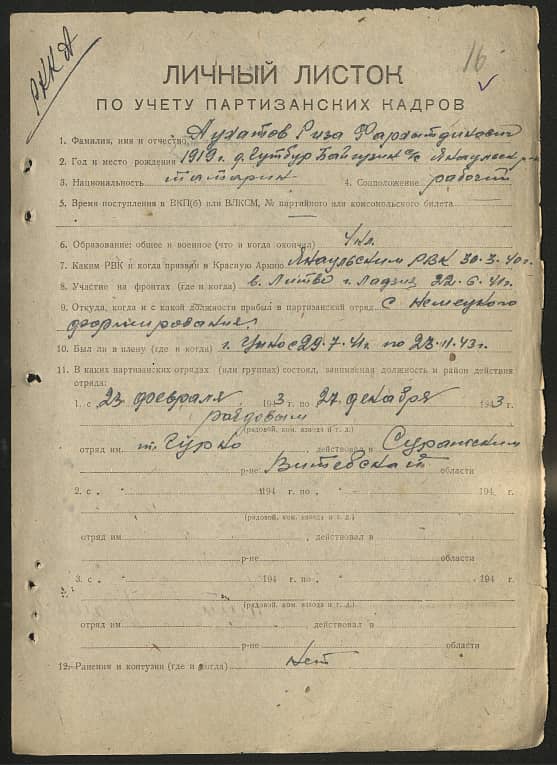 РККА
16
ЛИЧНЫЙ ЛИСТОК
ПО УЧЕТУ ПАРТИЗАНСКИХ КАДРОВ
1. Фамилия, имя и отчество Аухатов Риза
2. Год и место рождения 1919 г. д.
3. Национальность татарин 4. Соцположение рабочий
5. Время поступления в ВКП(б) или ВЛКСМ, № партийного или комсомольского билета —
6. Образование: общее и военное (что и когда окончил) 4 кл.
7. Каким РВК и когда призван в Красную Армию Янаульским РВК 30·3·40 г.
8. Участие на фронтах (где и когда) в Литве г. 22·6·41 г.
9. Откуда, когда и с какой должности прибыл в партизанский отряд с Немецкого
формирования.
10. Был ли в плену (где и когда) г. с 29·7·41 по 23·11·43 г.
11. В каких партизанских отрядах (или группах) состоял, занимаемая должность и район действия
отряда:
1. с 23 февраля 1943 г. по 27 декабря 1943 г.
рядовым
(рядовой, ком. взвода и т. д.)
отряд им т. Гурко, действовал в Суражским
р-не Витебской области
2. с 194 г. по 194 г.
(рядовой, ком. взвода и т. д.)
отряд им , действовал в
р-не области
3. с 194 г. по 194 г.
(рядовой, ком. взвода и т. д.)
отряд им , действовал в
р-не области
12. Ранения и контузии (где и когда) нет